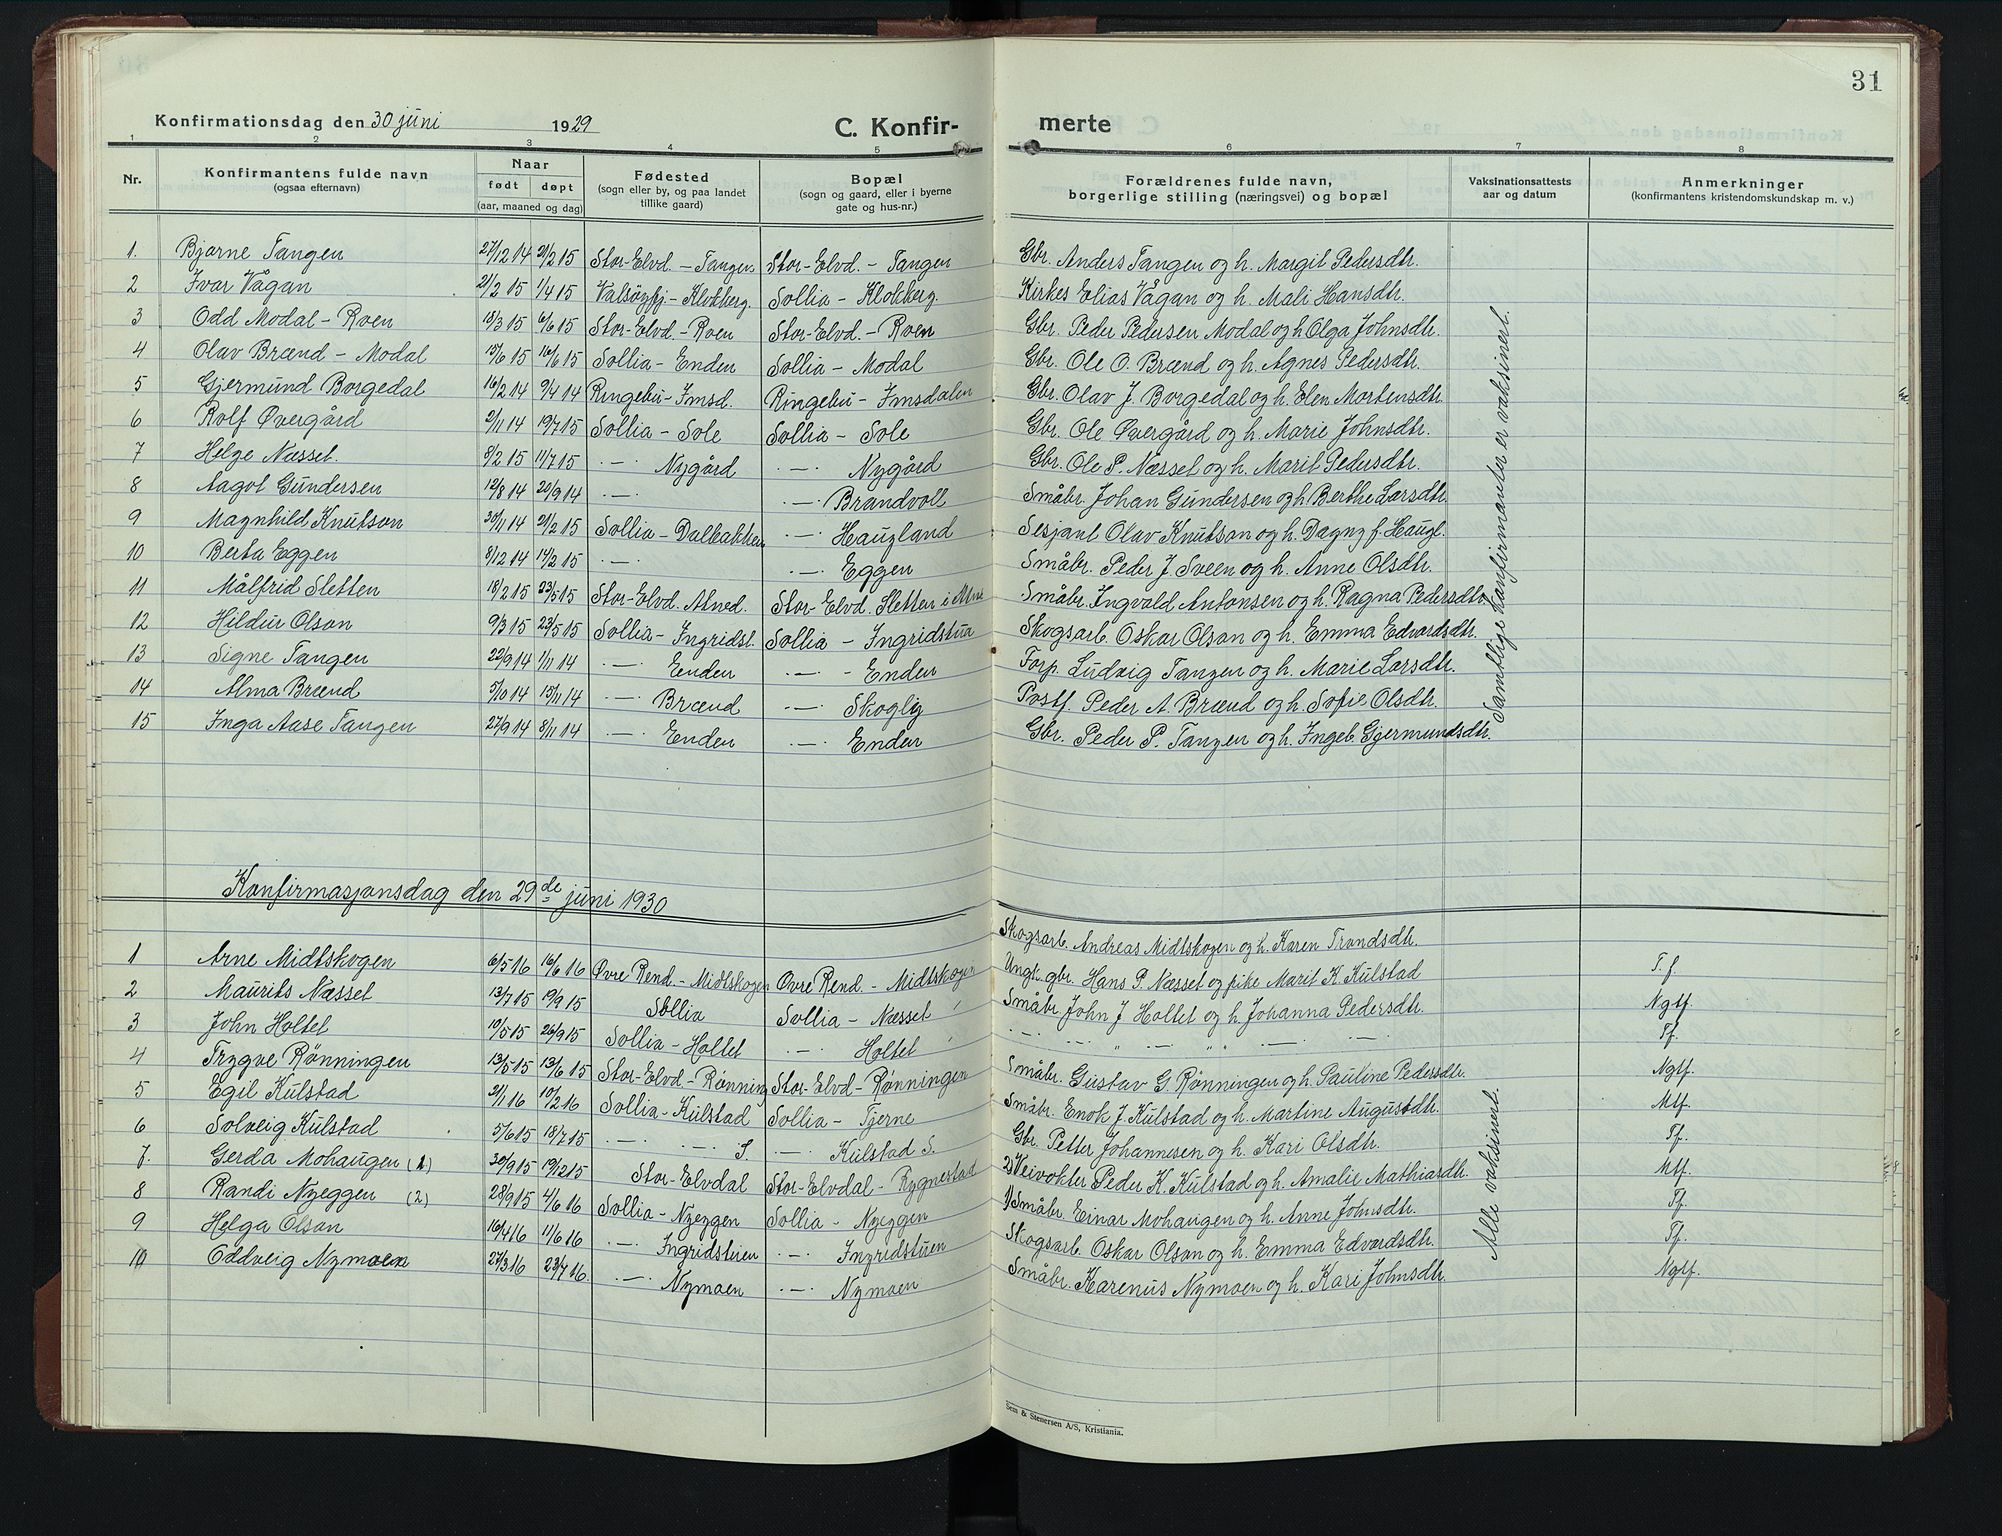 31
Konfirmationsdag den 30 juni 1929 C. Konfir- merte
1 2 3 4 5 6 7 8
Nr. Konfirmantens fulde navn (ogsaa efternavn) Naar født døpt (aar, maaned og dag) Fødested (sogn eller by, og paa landet tillike gaard) Bopæl (sogn og gaard, eller i byerne gate og hus-nr.) Forældrenes fulde navn, borgerlige stilling (næringsvei) og bopæl Vaksinationsattests aar og datum Anmerkninger (konfirmantens kristendomskundskap m. v.)
1. Bjarne Tangen 27/12 14 21/2 15 Stor-Elvd. - Tangen Stor-Elvd. - Tangen Gbr. Anders Tangen og h. Margit Pedersdtr.
2 Ivar Vågan 21/2 15 1/4 15 Valsøyfj - Klokkerg. Sollia - Klokkerg. Kirkes Elias Vågan og h. Mali Hansdtr.
3 Odd Modal - Roen 18/3 15 6/6 15 Stor-Elvd. - Roen Stor-Elvd. - Roen Gbr. Peder Pedersen Modal og h Olga Johnsdtr.
4 Olav Brænd - Modal 15/6 15 16/6 15 Sollia - Enden Sollia - Modal Gbr. Ole O. Brænd og h. Agnes Pedersdtr.
5 Gjermund Borgedal 16/2 14 9/4 14 Ringebu - Imsd. Ringebu - Imsdalen Gbr. Olav J. Borgedal og h. Elen Mortensdtr
6 Rolf Øvergård 2/11 14 19/7 15 Sollia - Sole Sollia - Sole Gbr. Ole Øvergård og h. Marie Johnsdtr.
7 Helge Næsset. 8/2 15 11/7 15 - — - Nygård - — - Nygård Gbr. Ole P. Næsset og h. Marit Pedersdtr.
8 Aagot Gundersen 12/8 14 20/9 14 - — - - — - Brandvoll Småbr. Johan Gundersen og h. Berthe Larsdtr.
9 Magnhild Knutson 30/11 14 21/2 15 Sollia - Dalbakken - — - Haugland Sesjant Olav Knutson og h. Dagny f. Haugl.
10 Berta Eggen 8/12 14 14/2 15 - — - - — - Eggen Småbr. Peder J. Sveen og h. Anne Olsdtr.
11 Målfrid Sletten 18/2 15 23/5 15 Stor-Elvd. Atned. Stor-Elvd. Sletten i Småbr. Ingvald Antonsen og h. Ragna Pedersdtr.
12 Hildur Olson 9/3 15 23/5 15 Sollia - Ingridst. Sollia - Ingridstua Skogsarb. Oskar Olson og h. Emma Edvardsdtr.
13 Signe Tangen 22/9 14 1/11 14 - — - Enden - — - Enden Forp. Ludvig Tangen og h. Marie Larsdtr.
14 Alma Brænd 5/10 14 15/11 14 - — - Brænd - — - Skogly Postf. Peder A. Brænd og h. Sofie Olsdtr.
15 Inga Aase Tangen 27/9 14 8/11 14 - — - Enden - — - Enden Gbr. Peder P. Tangen og h. Ingeb. Gjermundsdtr.
Samtlige konfirmanter er vaksinert.
Konfirmasjonsdag den 29de juni 1930
1 Arne Midtskogen 6/5 16 16/6 16 Øvre Rend. - Midtskogen Øvre Rend. - Midtskogen Skogsarb. Andreas Midtskogen og h. Karen Trondsdtr. T.f.
2 Maurits Næsset 13/7 15 19/9 15 Sollia Sollia - Næsset Ungk. gbr. Hans P. Næsset og pike Marit K. Kulstad Ngtf.
3 John Holtet 10/5 15 26/9 15 Sollia - Holtet - — - Holtet Småbr. John J Holtet og h. Johanna Pedersdtr. Tf.
4 Trygve Rønningen 13/5 15 13/6 15 Stor-Elvd - Rønning Stor-Elvd - Rønningen Småbr. Gustav G. Rønningen og h. Pauline Pedersdtr. Ngtf.
5 Egil Kulstad 21/1 16 10/2 16 Sollia - Kulstad Sollia - Tjerne Småbr. Enok J. Kulstad og h. Martine Augustdtr. Mtf.
6 Solveig Kulstad 5/6 15 18/7 15 - — - - — - S. - — - Kulstad S. Gbr. Petter Johannesen og h. Kari Olsdtr. Tf.
7. Gerda Mohaugen (1) 30/9 15 19/12 15 Stor-Elvdal Stor-Elvdal - Rygnestad 2) Veivokter Peder K. Kulstad og h. Amalie Mathiasdtr. Mtf.
8 Randi Nyeggen (2) 28/9 15 4/6 16 Sollia - Nyeggen Sollia - Nyeggen 1) Småbr. Einar Mohaugen og h. Anne Johnsdtr. Tf.
9 Helga Olson 16/4 16 11/6 16 - — - Ingridstuen - — - Ingridstuen Skogsarb. Oskar Olson og h. Emma Edvardsdtr. Tf.
10 Oddveig Nymoen 27/3 16 23/4 16. - — - Nymoen - — - Nymoen Småbr. Karenus Nymoen og h. Kari Johnsdtr. Ngtf.
Alle vaksinert.
Sem & Stenersen A/S, Kristiania.